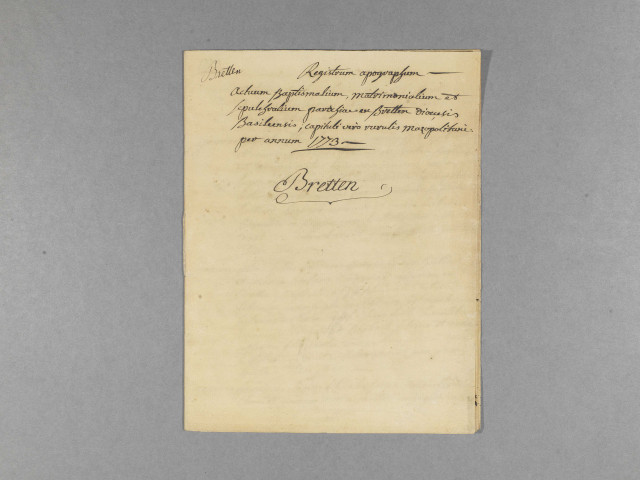 Bretten
Registrum apographum —
Actuum Baptismalium, matrimonialium et
sepulchralium parochiae in Bretten dioecesis
Basileensis, capituli vero ruralis masopolitani
per annum 1773 —
Bretten